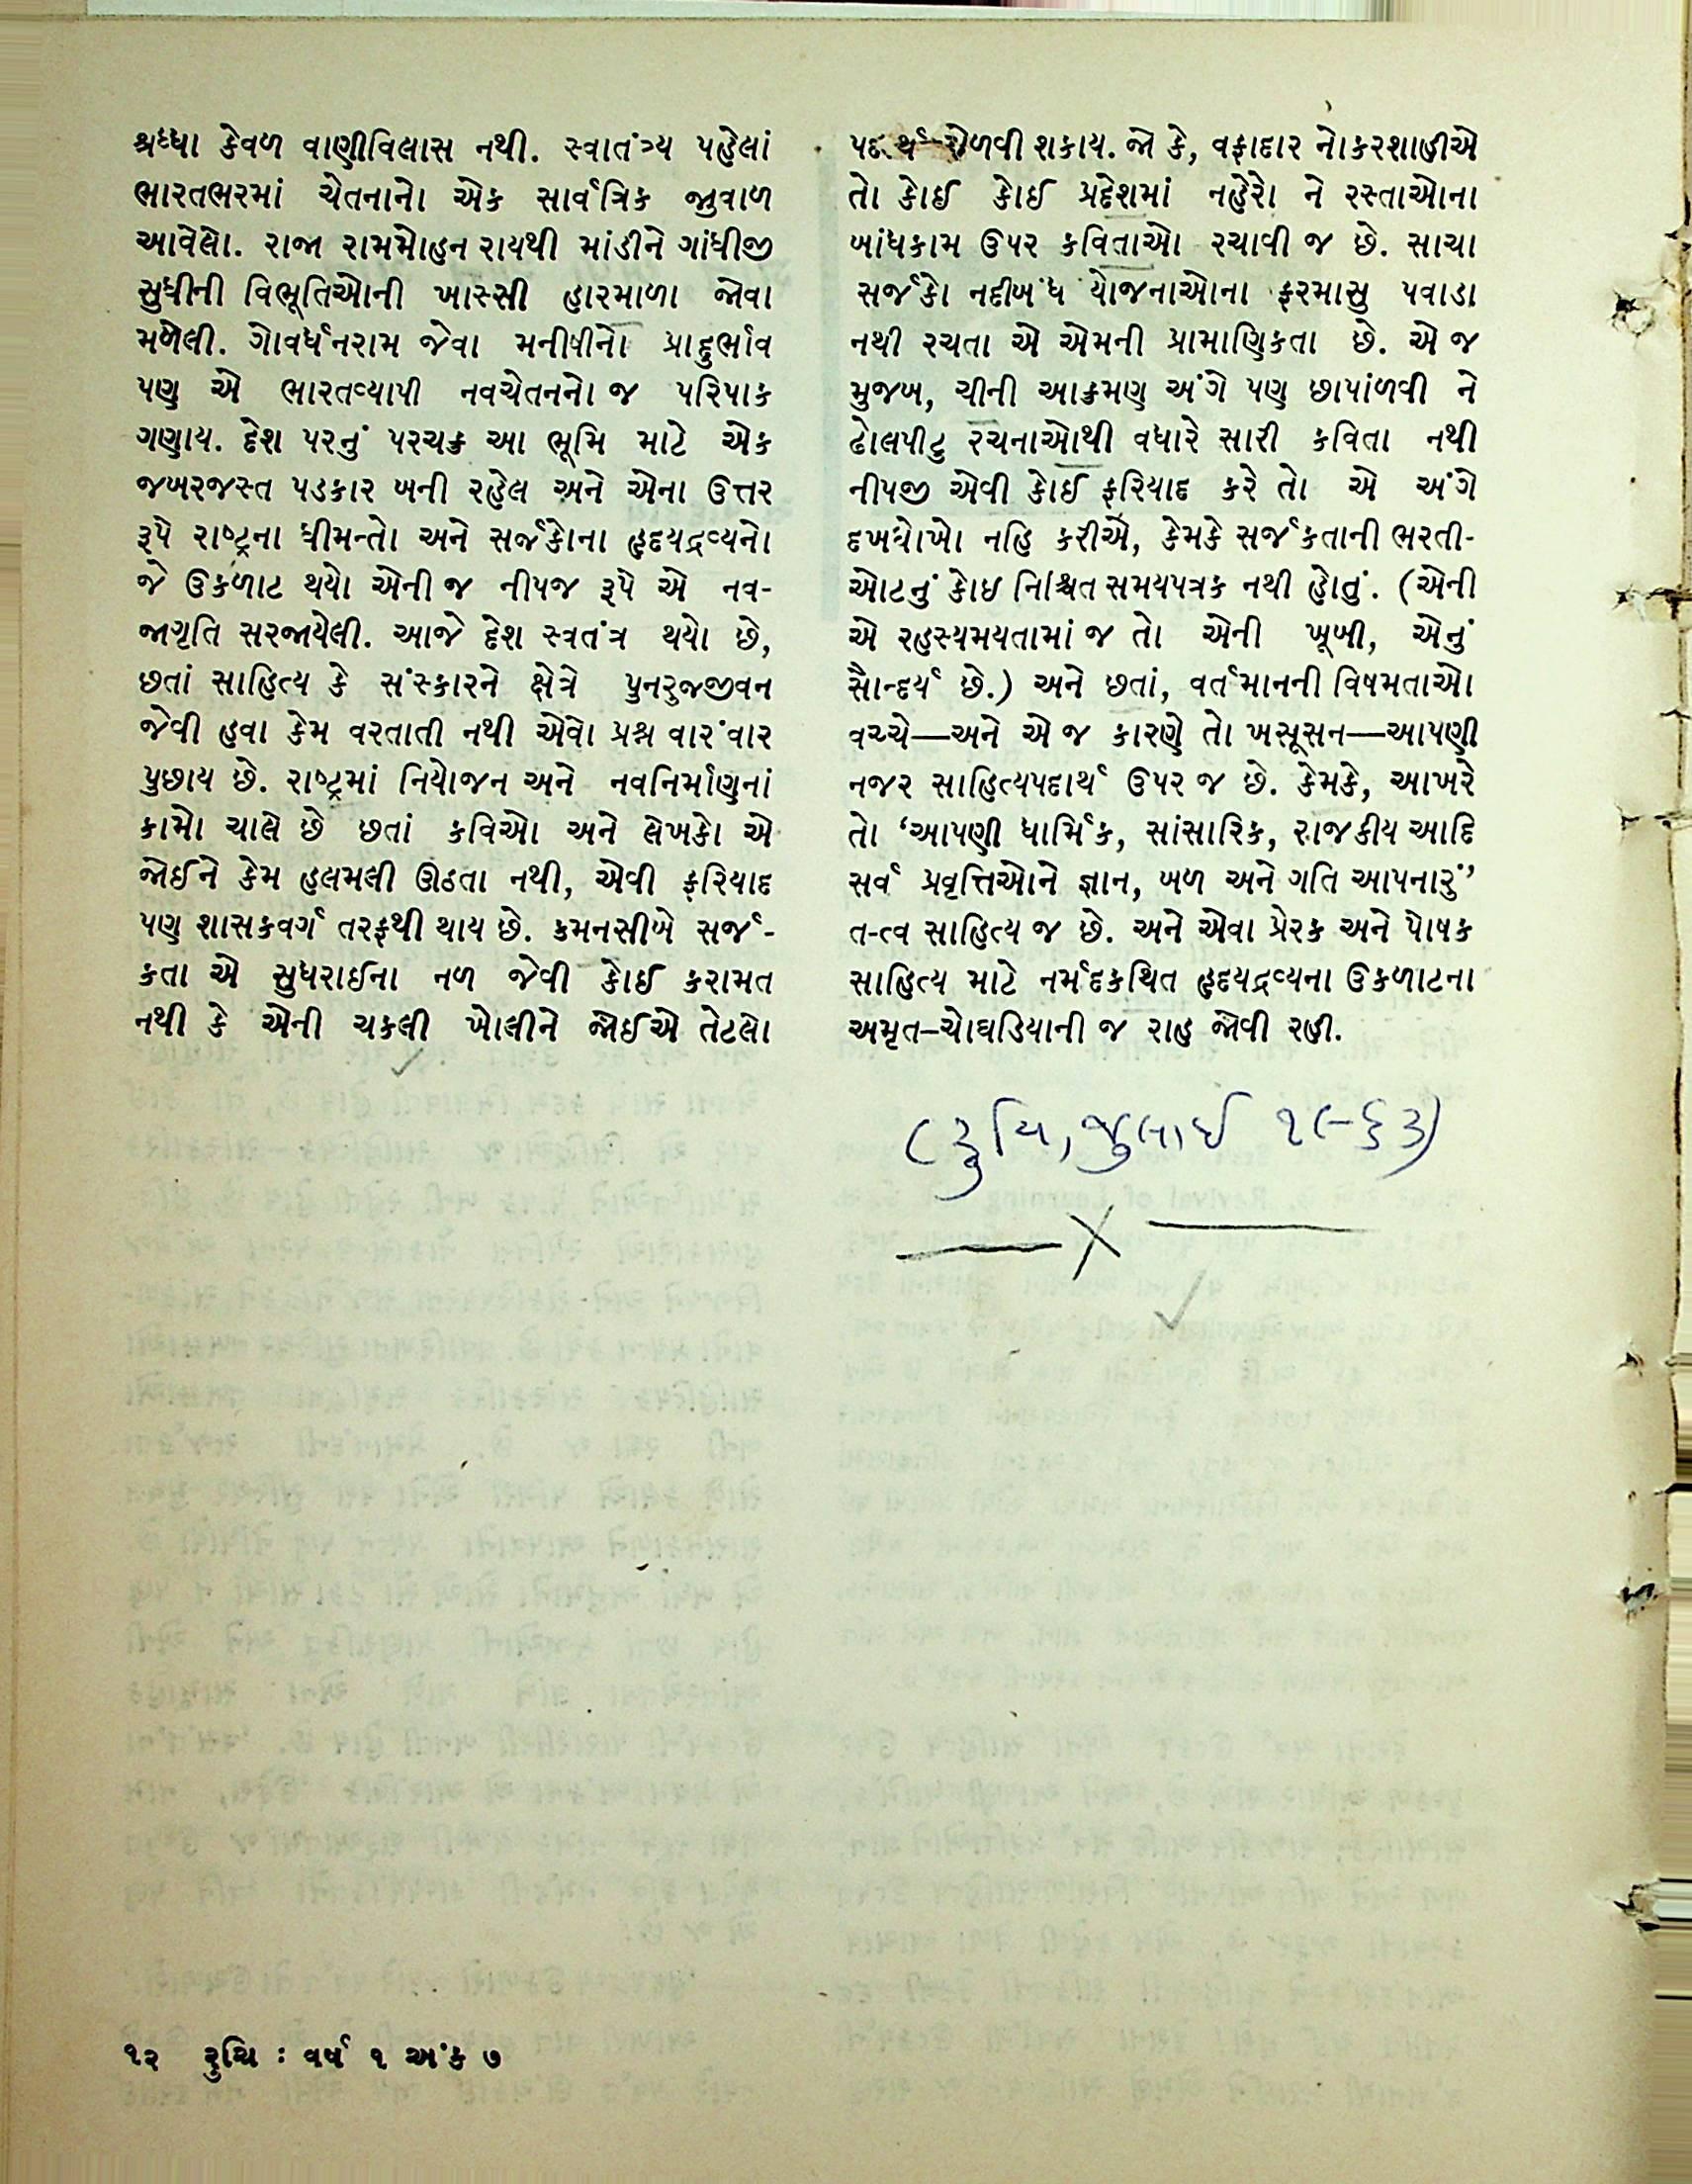 શ્રધ્ધા કેવળ વાણીવિલાસ નથી. સ્વાતંત્ર્ય પહેલાં
ભારતભરમાં ચેતનાનો એક સાર્વત્રિક જુવાળ
આવેલો. રાજા રામમોહન રાયથી માંડીને ગાંધીજી
સુધીની વિભૂતિઓની ખાસ્સી હારમાળા જોવા
મળેલી. ગોવર્ધનરામ જેવા મનીષીનો પ્રાદુર્ભાવ
પણ એ ભારતવ્યાપી નવચેતનનો જ પરિપાક
ગણાય. દેશ પરનું પરચક્ર આ ભૂમિ માટે એક
જબરજસ્ત પડકાર બની રહેલ અને એના ઉત્તર
રૂપે રાષ્ટ્રના ધીમન્તો અને સર્જકોના હૃદયદ્રવ્યનો
જે ઉકળાટ થયો એની જ નીપજ રૂપે એ નવ-
જાગૃતિ સરજાયેલી. આજે દેશ સ્વતંત્ર થયો છે,
છતાં સાહિત્ય કે સંસ્કારને ક્ષેત્રે પુનરુજ્જીવન
જેવી હવા કેમ વરતાતી નથી એવો પ્રશ્ન વારંવાર
પુછાય છે. રાષ્ટ્રમાં નિયોજન અને નવનિર્માણનાં
કામો ચાલે છે છતાં કવિઓ અને લેખકો એ
જોઈને કેમ હલમલી ઊઠતા નથી, એવી ફરિયાદ
પણ શાસકવર્ગ તરફથી થાય છે. કમનસીબે સર્જ-
કતા એ સુધરાઈના નળ જેવી કોઈ કરામત
નથી કે એની ચકલી ખોલીને જોઈએ તેટલો
પદાર્થ મેળવી શકાય. જો કે, વફાદાર નોકરશાહીએ
તો કોઈ કોઈ પ્રદેશમાં નહેરો ને રસ્તાઓના
બાંધકામ ઉપર કવિતાઓ રચાવી જ છે. સાચા
સર્જકો નદીબંધ યોજનાઓના ફરમાસુ પવાડા
નથી રચતા એ એમની પ્રામાણિકતા છે. એ જ
મુજબ, ચીની આક્રમણ અંગે પણ છાપાંળવી ને
ઢોલપીટુ રચનાઓથી વધારે સારી કવિતા નથી
નીપજી એવી કોઈ ફરિયાદ કરે તો એ અંગે
દખધોખો નહિ કરીએ, કેમકે સર્જકતાની ભરતી-
ઓટનું કોઇ નિશ્ચિત સમયપત્રક નથી હોતું. (એની
એ રહસ્યમયતામાં જ તો એની ખૂબી, એનું
સૌન્દર્ય છે.) અને છતાં, વર્તમાનની વિષમતાઓ
વચ્ચે—અને એ જ કારણે તો ખસૂસન—આપણી
નજર સાહિત્યપદાર્થ ઉપર જ છે. કેમકે, આખરે
તો ‘આપણી ધાર્મિક, સાંસારિક, રાજકીય આદિ
સર્વ પ્રવૃત્તિઓને જ્ઞાન, બળ અને ગતિ આપનારું’
ત-ત્વ સાહિત્ય જ છે. અને એવા પ્રેરક અને પોષક
સાહિત્ય માટે નર્મદકથિત હૃદયદ્રવ્યના ઉકળાટના
અમૃત–ચોઘડિયાની જ રાહ જોવી રહી.
(રુચિ, જુલાઈ ૧૯૬૩)
—×—
૧૨ રુચિ : વર્ષ ૧ અંક ૭